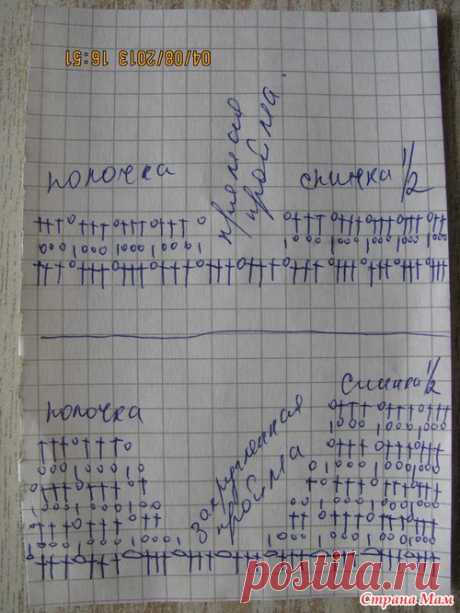 04/08/2013 16:51
прямая
пройма
полочка
спинка 1/2
спинка 1/2
полочка
закругленная
пройма
postila.ru
Страна Мам